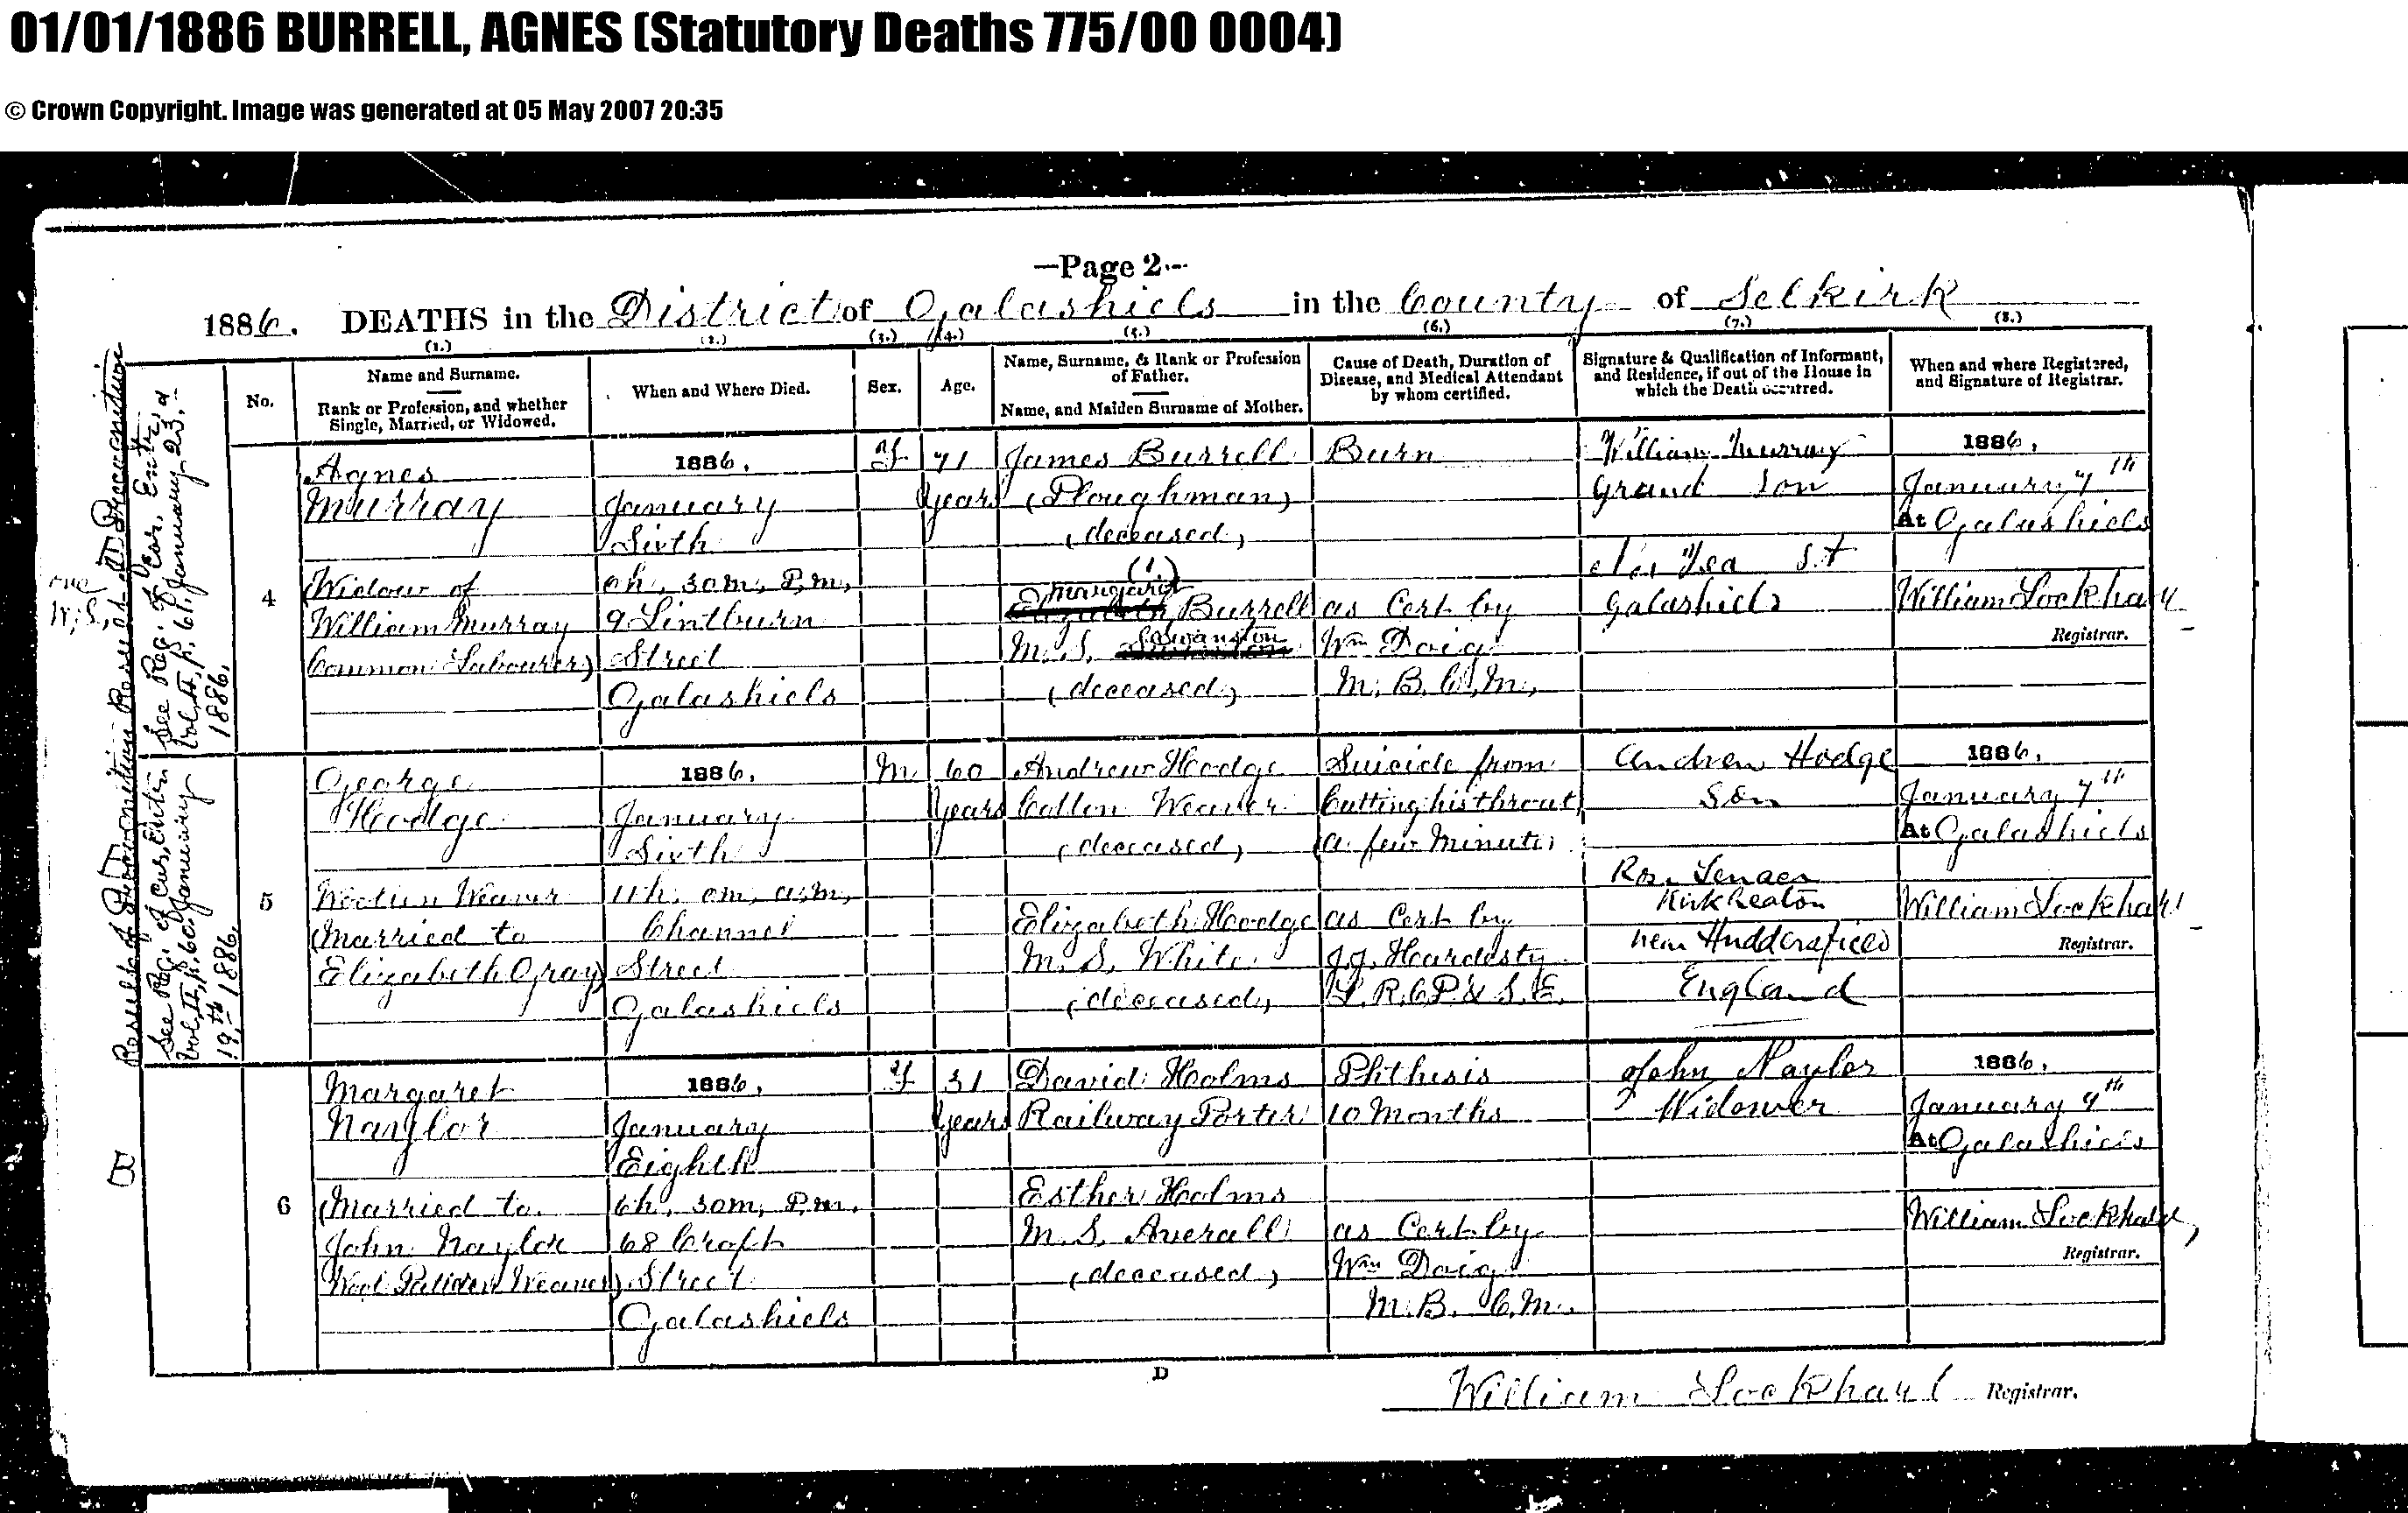 01/01/1886 BURRELL, AGNES (Statutory Deaths 775/00 0004)
© Crown Copyright. Image was generated at 05 May 2007 20:35
—Page 2.—
1886. DEATHS in the District of Galashiels in the County of Selkirk
(1.) (2.) (3.) (4.) (5.) (6.) (7.) (8.)
No.
Name and Surname.
Rank or Profession, and whether
Single, Married, or Widowed.
When and Where Died.
Sex.
Age.
Name, Surname, & Rank or Profession
of Father.
Name, and Maiden Surname of Mother.
Cause of Death, Duration of
Disease, and Medical Attendant
by whom certified.
Signature & Qualification of Informant,
and Residence, if out of the House in
which the Death occurred.
When and where Registered,
and Signature of Registrar.
Result of Precognition Result of Precognition
See Reg. of Cor. Entries
Vol. II, p. 61, January 23,
1886.
4
Agnes
Murray
(Widow of
William Murray
Common Labourer)
1886.
January
Sixth
0h. 30m. P.m.
9 Lintburn
Street
Galashiels
F
71
years
James Burrell
(Ploughman)
(deceased)
(1)
Margaret
Elizabeth Burrell
Swanston
M.S.
(deceased)
Burn
as Cert by
Wm Doig
M.B.C.M.
William Murray
Grand Son
St
Galashiels
1886.
January 7th
At Galashiels
William Lockhart
Registrar.
See Reg. of Cor. Entries
Vol. II, p. 60, January
19th 1886.
5
George
Hodge
Woollen Weaver
(Married to
Elizabeth Gray)
1886.
January
Sixth
11h. 0m. a.m.
Channel
Street
Galashiels
M
60
years
Andrew Hodge
Cotton Weaver
(deceased)
Elizabeth Hodge
M.S. White
(deceased)
Suicide from
Cutting his throat
(a few Minutes
as Cert by
J.J. Hardesty
L.R.C.P. & S.E.
Andrew Hodge
Son
Kirkheaton
near Huddersfield
England
1886.
January 7th
At Galashiels
William Lockhart
Registrar.
6
Margaret
Naylor
(Married to
John Naylor
Wool Pattern Weaver)
1886.
January
Eighth
6h. 30m. P.m.
68 Croft
Street
Galashiels
F
31
years
David Holms
Railway Porter
Esther Holms
M.S. Averall
(deceased)
Phthisis
10 Months
as Cert by
Wm Doig
M.B. C.M.
John Naylor
Widower
1886.
January 9th
At Galashiels
William Lockhart
Registrar.
D
William Lockhart Registrar.